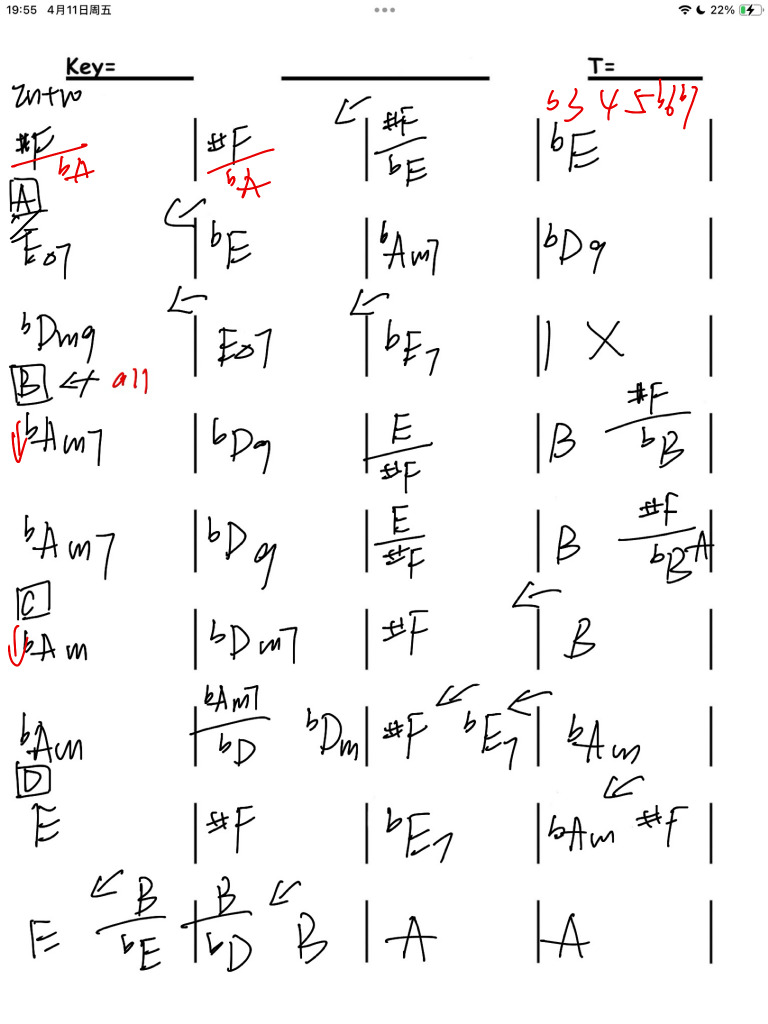 19:55 4月11日周五 22%
Key= T=
Intro b3 4 5 b6 b7
#F/bA | #F/bA | #F/bE | bE |
A
Eo7 | bE | bAm7 | bD9 |
bDm9 | Eo7 | bE7 | X |
B all
bAm7 | bD9 | E/#F | B #F/bB |
bAm7 | bD9 | E/#F | B #F/bB A |
C
bAm | bDm7 | #F | B |
bAm | bAm7/bD bDm | #F bE7 | bAm |
D
E | #F | bE7 | bAm #F |
E B/bE | B/bD B | A | A |